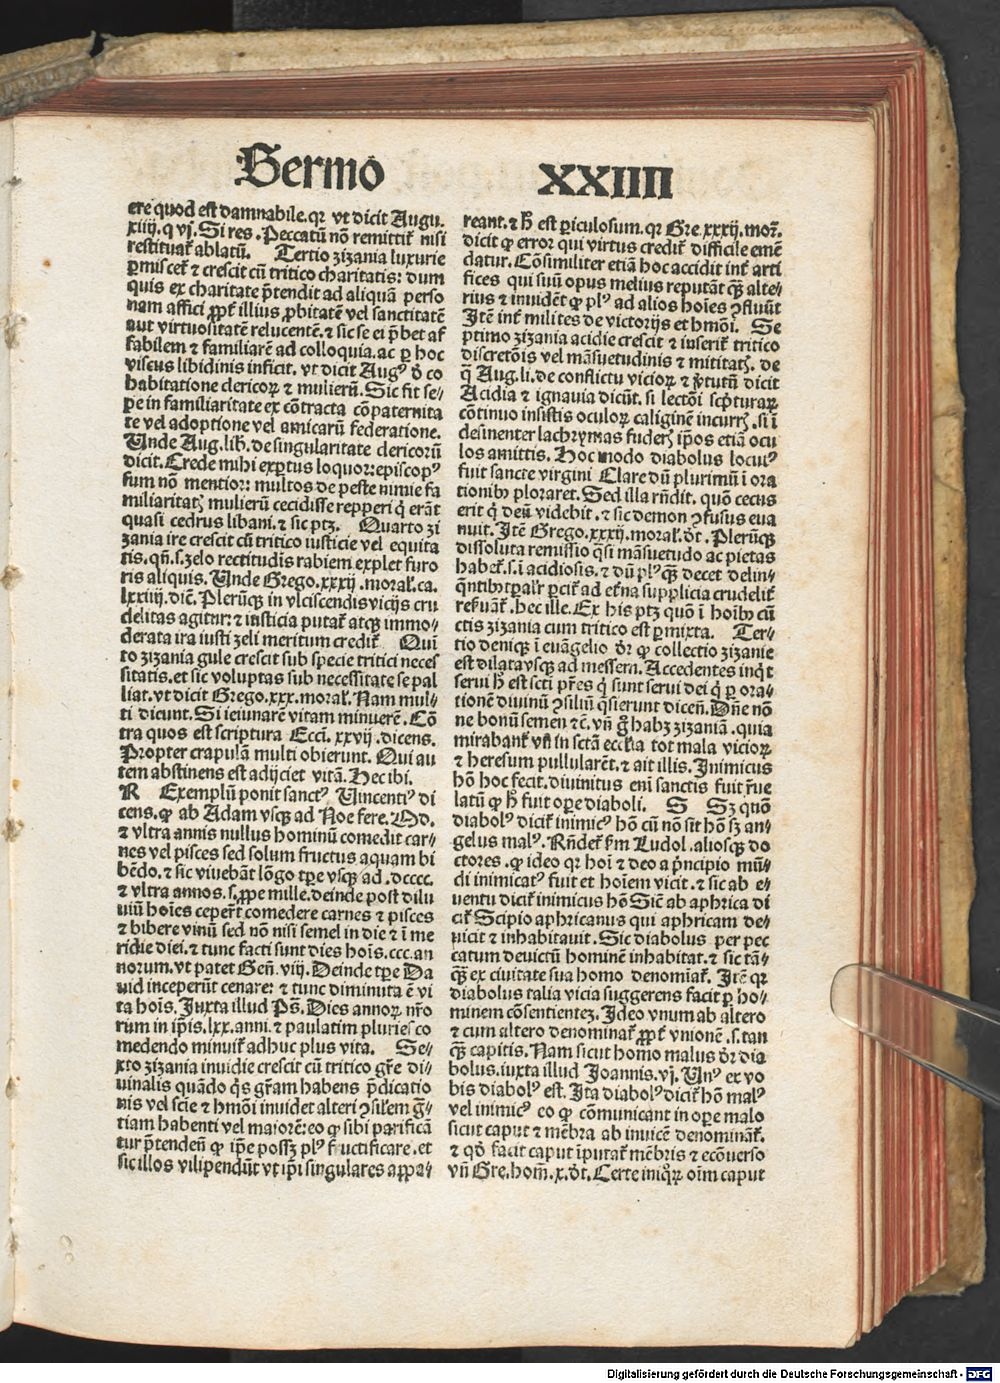 Sermo XXIIII
ere quod est damnabile. qr vt dicit Augu.
xiiij. q vj. Si res. Peccatū nō remittit̄ nisi
restituat̄ ablatū. Tertio zizania luxurie
ꝑmiscet̄ ⁊ crescit cū tritico charitatis: dum
quis ex charitate p̄tendit ad aliquā perso
nam affici ꝓpt̄ illius ꝓbitatē vel sanctitatē
aut virtuositatē relucentē. ⁊ sic se ei p̄bet af
fabilem ⁊ familiarē ad colloquia. ac ꝑ hoc
viscus libidinis inficit. vt dicit Augꝰ ō co
habitatione clericoꝝ ⁊ mulierū. Sic fit se-
pe in familiaritate ex cōtracta cōpaternita
te vel adoptione vel amicarū federatione.
Unde Aug. lib. de singularitate clericorū
dicit. Crede mihi exꝑtus loquor: episcopꝰ
sum nō mentior: multos de peste nimie fa
miliaritatꝭ mulierū cecidisse repperi q̄ erāt
quasi cedrus libani. ⁊ sic ptꝫ. Quarto zi
zania ire crescit cū tritico iusticie vel equita
tis. qn̄. s. zelo rectitudis rabiem explet furo
ris aliquis. Unde Grego. xxxij. moral. ca.
lxxiiij. dic̄. Plerūqꝫ in vlciscendis vicijs cru
delitas agitur: ⁊ iusticia putat̄ atqꝫ immo-
derata ira iusti zeli meritum credit̄ Quin
to zizania gule crescit sub specie tritici neces
sitatis. et sic voluptas sub necessitate se pal
liat. vt dicit Grego. xxx. moral. Nam mul-
ti dicunt. Si ieiunarē vitam minuerē. Cō
tra quos est scriptura Ecci. xxvij. dicens.
Propter crapulā multi obierunt. Qui au
tem abstinens est adijciet vitā. Hec ibi.
R Exemplū ponit sanctꝰ Uincentiꝰ di
cens. ꝙ ab Adam vsqꝫ ad Noe fere. M.
⁊ vltra annis nullus hominū comedit car-
nes vel pisces sed solum fructus aquam bi
bēdo. ⁊ sic viuebāt lōgo tꝑe vsqꝫ ad. dcccc.
⁊ vltra annos. s. ꝓpe mille. deinde post dilu
uiū hoīes ceper̄t comedere carnes ⁊ pisces
⁊ bibere vinū sed nō nisi semel in die ⁊ ī me
ridie diei. ⁊ tunc facti sunt dies hoīs. ccc. an
norum. vt patet Gen̄. viij. Deinde tꝑe Da
uid inceperūt cenare: ⁊ tunc diminuta ē vi
ta hoīs. Juxta illud Ps̄. Dies annoꝝ nr̄o
rum in ip̄is. lxx. anni. ⁊ paulatim pluries co
medendo minuit̄ adhuc plus vita. Se-
xto zizania inuidie crescit cū tritico gr̄e di-
uinalis quādo q̄s gr̄am habens p̄dicatio
nis vel scīe ⁊ hmōi inuidet alteri ꝯsilem gr̄-
tiam habenti vel maiorē: eo ꝙ sibi parificā
tur p̄tenden̄ ꝙ ip̄e possꝫ plꝰ fructificare. et
sic illos vilipendūt vt ip̄i singulares appa-
reant. ⁊ hͦ est ꝑiculosum. qr Gre. xxxij. mor̄.
dicit ꝙ error qui virtus credit̄ difficile emē
datur. Cōsimiliter etiā hoc accidit int̄ arti
fices qui suū opus melius reputāt qꝫ̄ alte-
rius ⁊ inuidēt ꝙ plꝰ ad alios hoīes ꝯfluūt
Itē int̄ milites de victorijs et hmōi. Se
ptimo zizania acidie crescit ⁊ inserit̄ tritico
discretōis vel māsuetudinis ⁊ mititatꝭ. de
q̄ Aug. li. de conflictu vicioꝝ ⁊ ꝟtutū dicit
Acidia ⁊ ignauia dicūt. si lectōi scpturaꝝ
cōtinuo insistis oculoꝝ caliginē incurrꝭ. si ī
desinenter lachrymas fuderꝭ ip̄os etiā ocu
los amittis. Hoc modo diabolus locutꝰ
fuit sancte virgini Clare dū plurimū ī ora
tionibꝫ ploraret. Sed illa rn̄dit. quō cecus
erit q̄ deū videbit. ⁊ sic demon ꝯfusus eua
nuit. Itē Grego. xxxij. moral. ōt. Plerūqꝫ
dissoluta remissio q̄si māsuetudo ac pietas
habet̄. s. ī acidiosis. ⁊ dū plꝰ qꝫ̄ decet delin-
q̄ntibꝫ tꝑalr̄ ꝑcit̄ ad et̄na supplicia crudelit̄
reẜuāt̄. hec ille. Ex his ptꝫ quō ī hoībꝫ cū
ctis zizania cum tritico est ꝑmixta. Ter-
tio deniqꝫ ī euāgelio ōr ꝙ collectio zizanie
est dilata vsqꝫ ad messem. Accedentes inq̄t
serui hͦ est scti pr̄es q̄ sunt serui dei q̄ ꝑ ora-
tionē diuinū ꝯsiliū q̄sierunt dicen̄. Dn̄e nō
ne bonū semen ⁊c̄. vn̄ ḡ habꝫ zizaniā. quia
mirabant̄ vn̄ in sctā ecclia tot mala vicioꝝ
⁊ heresum pullularēt. ⁊ ait illis. Inimicus
hō hoc fecit. diuinitus eni sanctis fuit r̄ue
latū ꝙ hͦ fuit oꝑe diaboli. S Sꝫ quō
diabolꝰ dicit̄ inimicꝰ hō cū nō sit hō sꝫ an-
gelus malꝰ. Rn̄det̄ ẜm Ludol. aliosqꝫ do
ctores. ꝙ ideo qr hoī ⁊ deo a p̄ncipio mū-
di inimicatꝰ fuit et hoīem vicit. ⁊ sic ab e-
uentu dicit̄ inimicus hō Sic̄ ab aphrica di
cit̄ Scipio aphricanus qui aphricam de-
uicit ⁊ inhabitauit. Sic diabolus per pec
catum deuictū hominē inhabitat. ⁊ sic tā-
qꝫ̄ ex ciuitate sua homo denomiat̄. Itē qr
diabolus talia vicia suggerens facit ꝑ ho-
minem cōsentientez. Ideo vnum ab altero
⁊ cum altero denominat̄ ꝓpt̄ vnionē. s. tan
qꝫ̄ capitis. Nam sicut homo malus ōr dia
bolus. iuxta illud Joannis. vj. Unꝰ ex vo
bis diabolꝰ est. Ita diabolꝰ dicit̄ hō malꝰ
vel inimicꝰ eo ꝙ cōmunicant in oꝑe malo
sicut caput ⁊ mēbra ab inuicē denominant̄.
⁊ qō facit caput īputat̄ mēbris ⁊ ecōuerso
vn̄ Gre. hom̄. x. ōt. Certe iniqꝰꝝ oīm caput
Digitalisierung gefördert durch die Deutsche Forschungsgemeinschaft - DFG